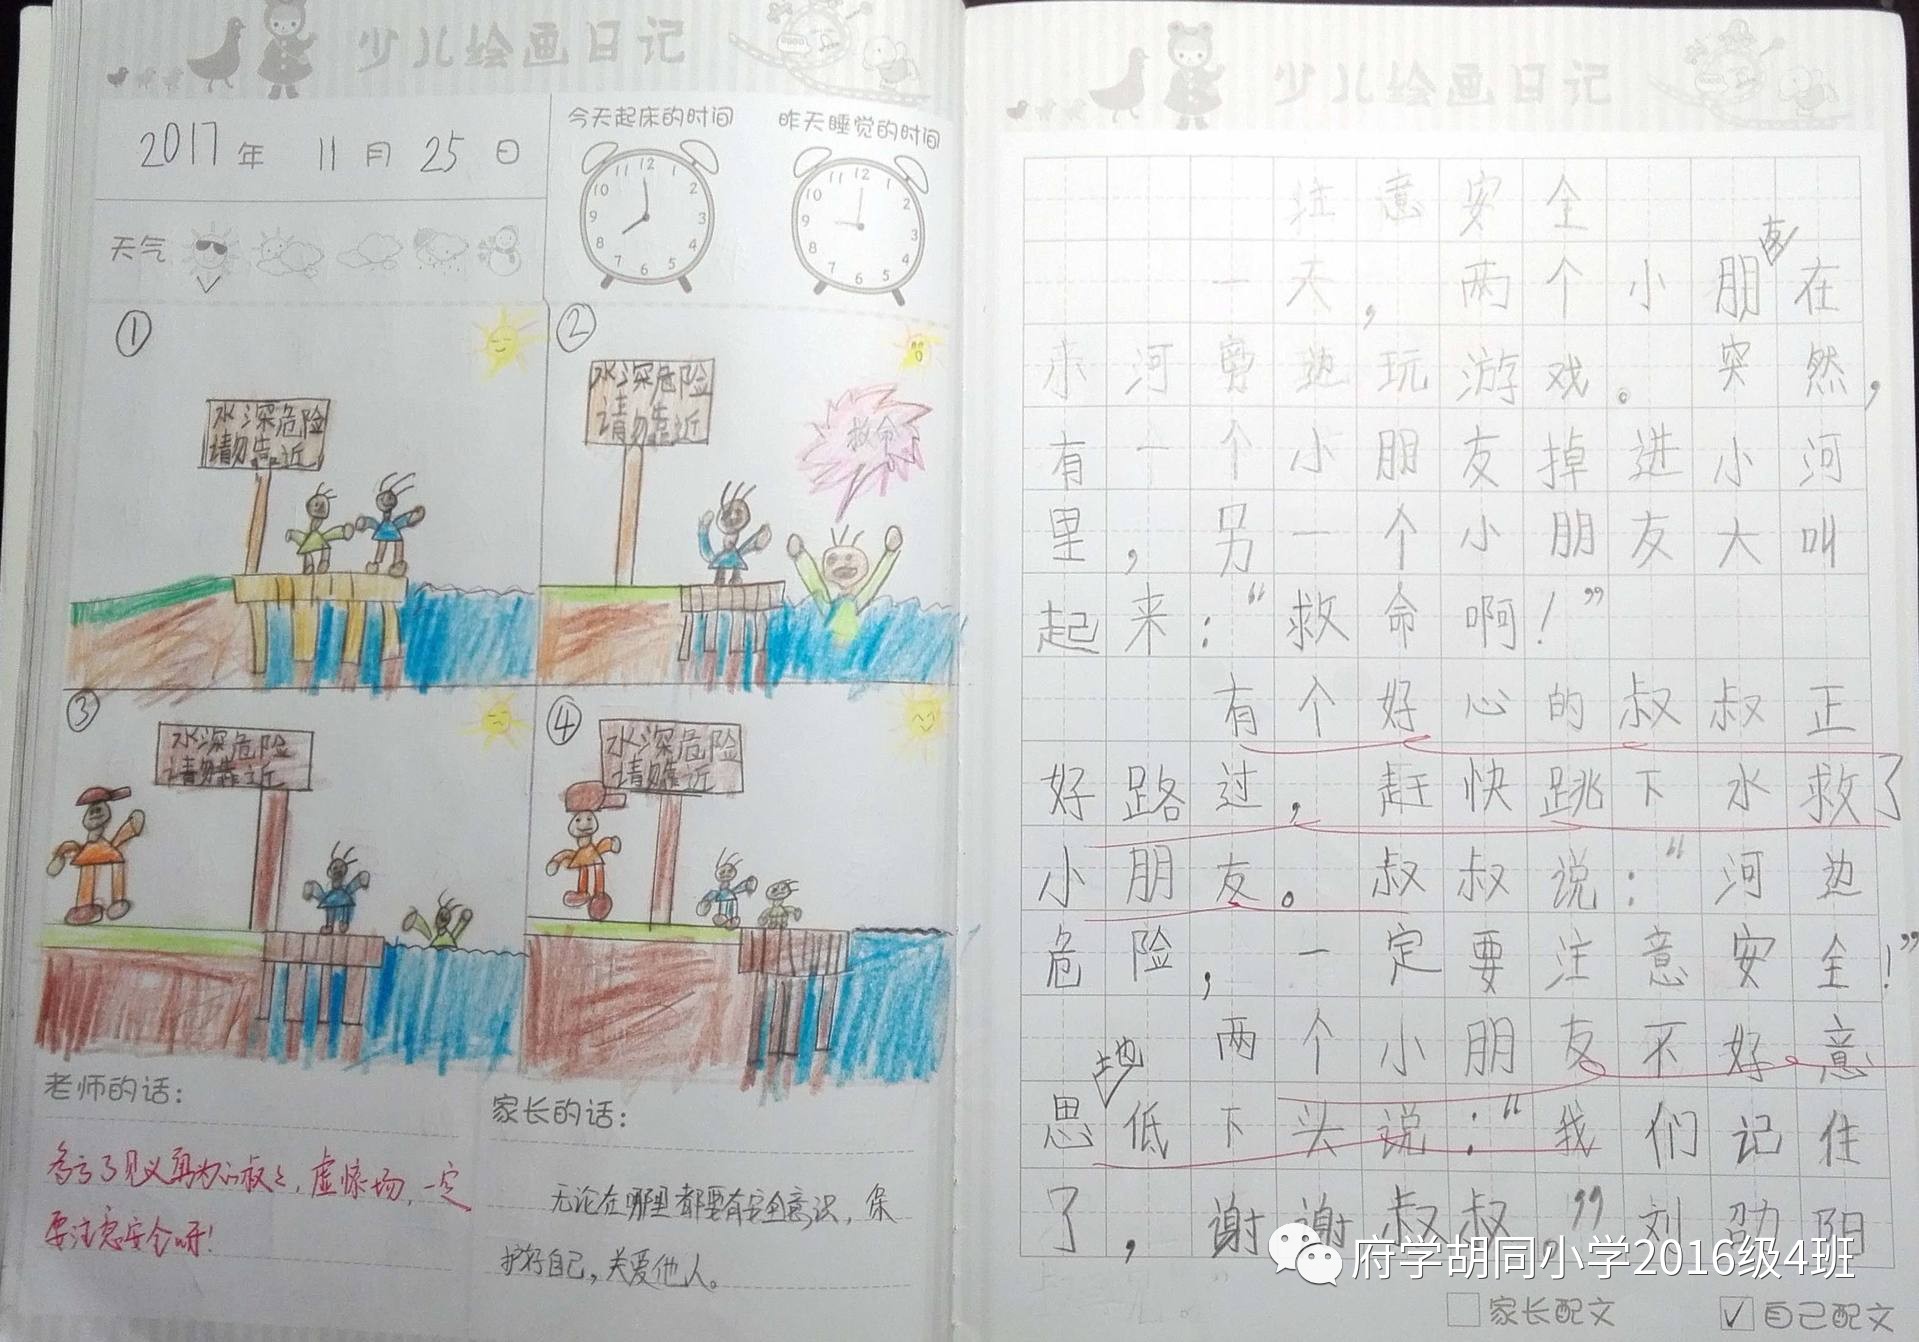 少儿绘画日记
2017年 11月 25日
今天起床的时间
昨天睡觉的时间
12 1 2 3 4 5 6 7 8 9 10 11
12 1 2 3 4 5 6 7 8 9 10 11
天气
①
水深危险
请勿靠近
②
水深危险
请勿靠近
救命
③
水深危险
请勿靠近
④
水深危险
请勿靠近
老师的话：
了见义勇为的叔叔，虚惊一场，一定
要注意安全呀！
家长的话：
无论在哪里都要有安全意识，保
护好自己，关爱他人。
少儿绘画日记
注意安全
一天，两个小朋友在
小河旁边玩游戏。突然，
有一个小朋友掉进小河
里，另一个小朋友大叫
起来：“救命啊！”
有个好心的叔叔正
好路过，赶快跳下水救了
小朋友。叔叔说：“河边
危险，一定要注意安全！”
两个小朋友不好意
思地低下头说：“我们记住
了，谢谢叔叔。”刘劭阳
府学胡同小学2016级4班
家长配文
自己配文